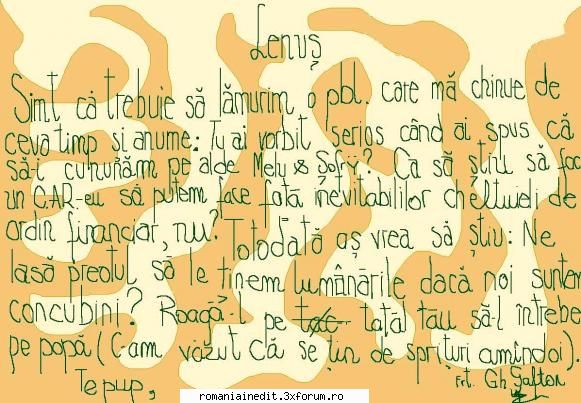 Lenuș
Simt că trebuie să lămurim o pbl. care mă chinue de
ceva timp și anume: Tu ai vorbit serios când ai spus că
să-i cununăm pe alde Melu & Sofy? Ca să știu să fac
un C.A.R-eu să putem face față inevitabililor cheltuieli de
ordin financiar, nu? Totodată aș vrea să știu: Ne
lasă preotul să le ținem lumânările dacă noi suntem
concubini? Roagă-l pe tatăl tău să-l întrebe
pe popă (C-am văzut că se țin de sprițuri amîndoi).
Te pup,
Gh
romaniainedit.3xforum.ro